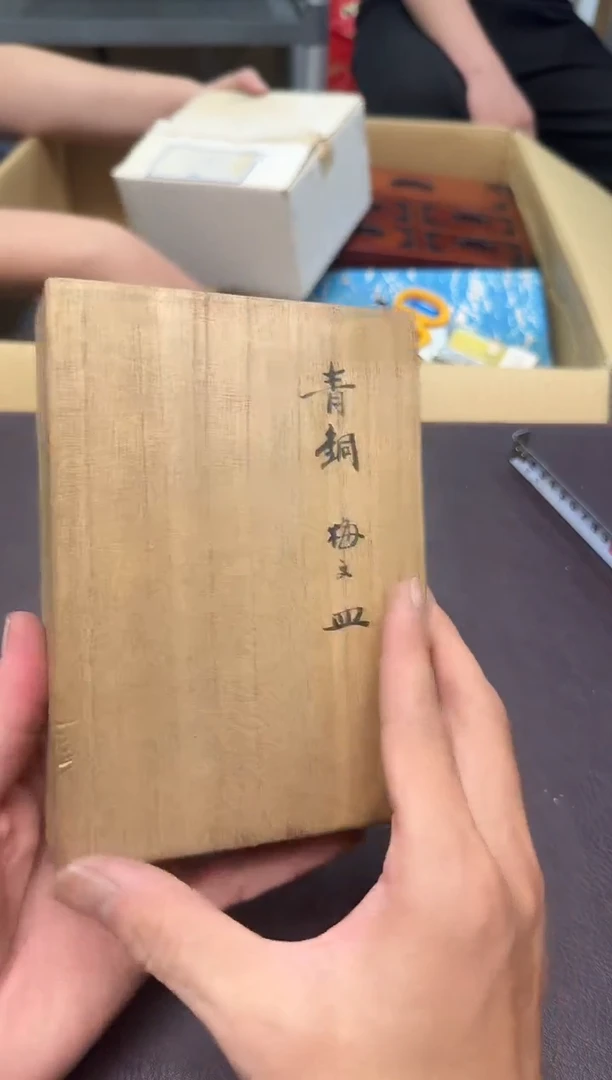 青銅 梅文 皿